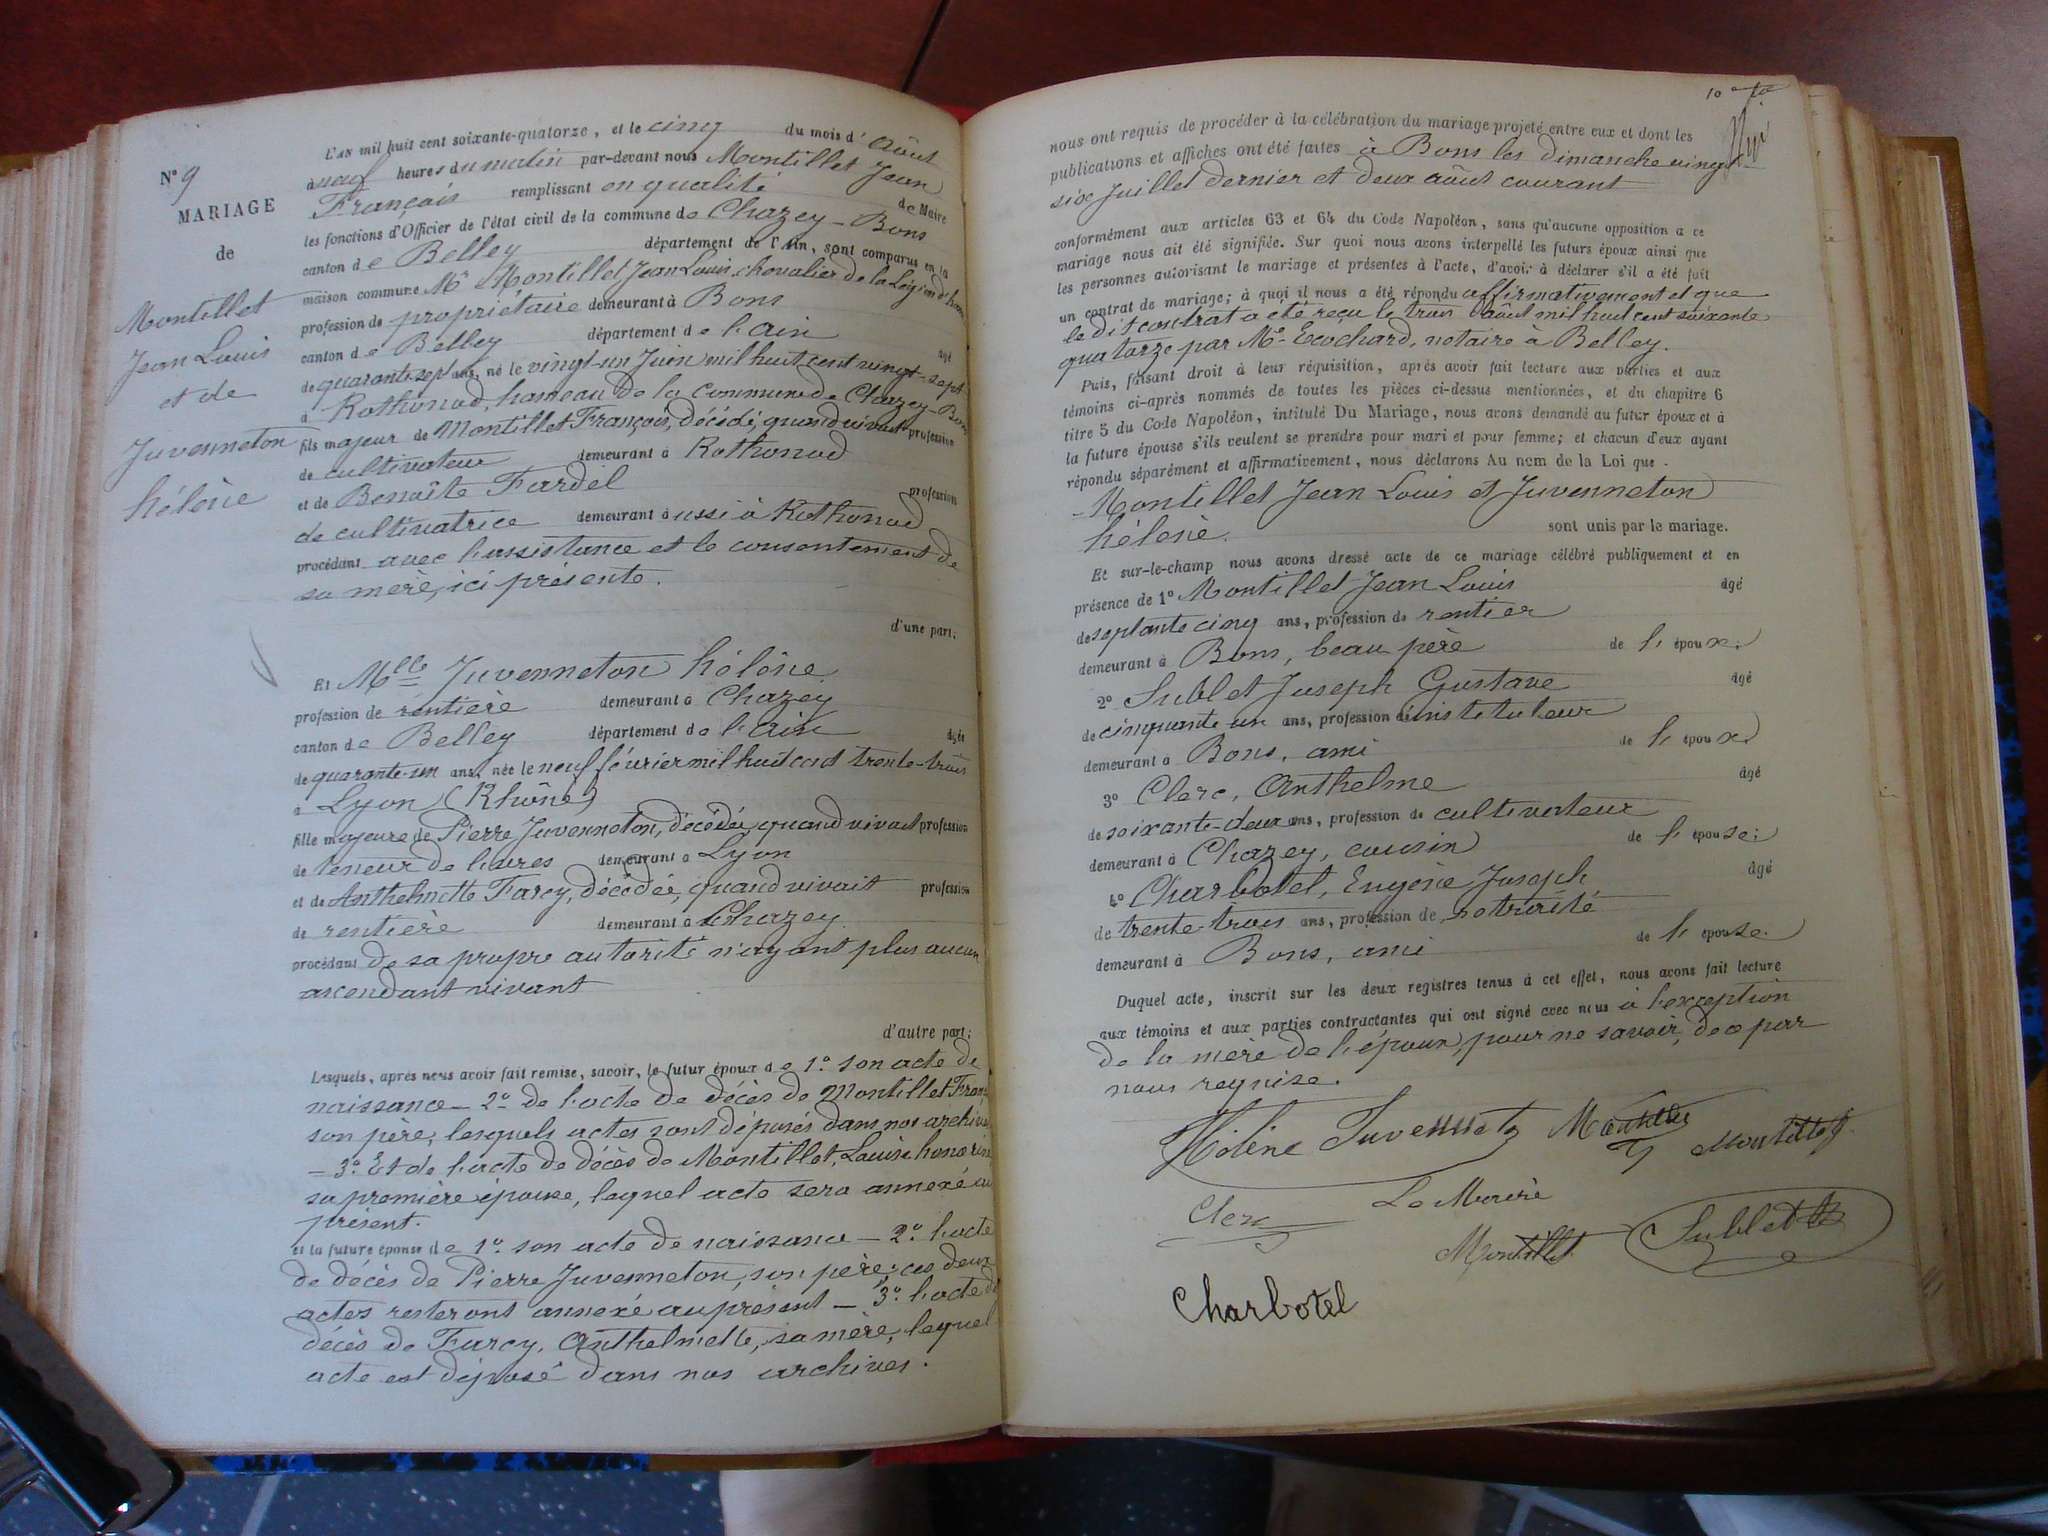 N° 9
MARIAGE
de
Montillet
Jean Louis
et de
Juvenneton
hélène
L'AN mil huit cent soixante-quatorze, et le cinq du mois d' Août
à neuf heures du matin par-devant nous Montillet Jean
François remplissant en qualité de Maire
les fonctions d'Officier de l'état civil de la commune de Chazey-Bons
canton de Belley département de l'Ain, sont comparus en la
maison commune Mr Montillet Jean Louis chevalier de la Légion d'honneur
profession de propriétaire demeurant à Bons
canton de Belley département de l'Ain âgé
de quarante-sept ans, né le vingt-un Juin mil huit cent vingt-sept
à Rothonod, hameau de la commune de Chazey-Bons
fils majeur de Montillet François, décédé, quand vivait profession
de cultivateur demeurant à Rothonod
et de Benoîte Fardel profession
de cultivatrice demeurant aussi à Rothonod
procédant avec l'assistance et le consentement de
sa mère, ici présente.
d'une part;
Et Mlle Juvenneton hélène
profession de rentière demeurant à Chazey
canton de Belley département de l'Ain âgée
de quarante-un ans, née le neuf février mil huit cent trente-trois
à Lyon (Rhône)
fille majeure de Pierre Juvenneton, décédé, quand vivait profession
de teneur de livres demeurant à Lyon
et de Anthelmette Farcy, décédée, quand vivait profession
de rentière demeurant à Chazey
procédant de sa propre autorité n'ayant plus aucun
ascendant vivant
d'autre part;
Lesquels, après nous avoir fait remise, savoir, le futur époux de 1° son acte de
naissance - 2° de l'acte de décès de Montillet Franç
son père, lesquels actes sont déposés dans nos archives
- 3° Et de l'acte de décès de Montillet, Louise honorine
sa première épouse, lequel acte sera annexé au
présent.
et la future épouse de 1° son acte de naissance - 2° l'acte
de décès de Pierre Juvenneton, son père; ces deux
actes resteront annexé au présent - 3° l'acte de
décès de Farcy, Anthelmette, sa mère, lequel
acte est déposé dans nos archives.
10
nous ont requis de procéder à la célébration du mariage projeté entre eux et dont les
publications et affiches ont été faites à Bons les dimanche vingt
six Juillet dernier et deux août courant
conformément aux articles 63 et 64 du Code Napoléon, sans qu'aucune opposition a ce
mariage nous ait été signifiée. Sur quoi nous avons interpellé les futurs époux ainsi que
les personnes autorisant le mariage et présentes à l'acte, d'avoir à déclarer s'il a été fait
un contrat de mariage; à quoi il nous a été répondu affirmativement et que
le dit contrat a été reçu le trois Août mil huit cent soixante
quatorze par Me Ecochard, notaire à Belley.
Puis, faisant droit à leur réquisition, après avoir fait lecture aux parties et aux
témoins ci-après nommés de toutes les pièces ci-dessus mentionnées, et du chapitre 6
titre 5 du Code Napoléon, intitulé Du Mariage, nous avons demandé au futur époux et à
la future épouse s'ils veulent se prendre pour mari et pour femme; et chacun d'eux ayant
répondu séparément et affirmativement, nous déclarons Au nom de la Loi que
- Montillet Jean Louis et Juvenneton
hélène. sont unis par le mariage.
Et sur-le-champ nous avons dressé acte de ce mariage célébré publiquement et en
présence de 1° Montillet Jean Louis âgé
de septante cinq ans, profession de rentier
demeurant à Bons, beau père de l'époux;
2° Sublet Joseph Gustave âgé
de cinquante un ans, profession d'instituteur
demeurant à Bons, ami de l'époux.
3° Clerc, Anthelme âgé
de soixante-deux ans, profession de cultivateur
demeurant à Chazey, cousin de l'épouse;
4° Charbotel, Eugène Joseph âgé
de trente-trois ans, profession de notariité
demeurant à Bons, ami de l'épouse.
Duquel acte, inscrit sur les deux registres tenus à cet effet, nous avons fait lecture
aux témoins et aux parties contractantes qui ont signé avec nous à l'exception
de la mère de l'époux, pour ne savoir, de ce par
nous requise.
Hélène Juvenneton Montillet Montillet
Clerc Le Maire
Montillet Sublet
Charbotel